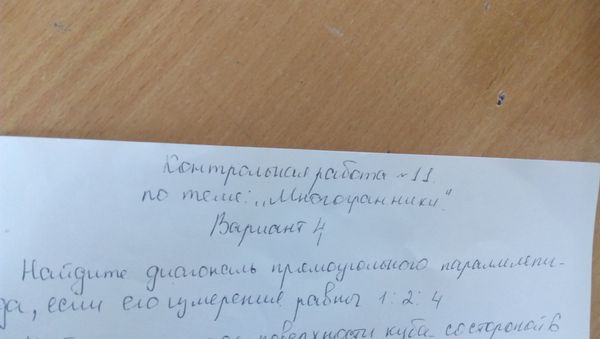 Контрольная работа ~ 11
по теме: „Многогранники".
Вариант 4
Найдите диагональ прямоугольного паралилепи-
да, если его измерения равны 1: 2: 4
поверхности куба со стороной 6